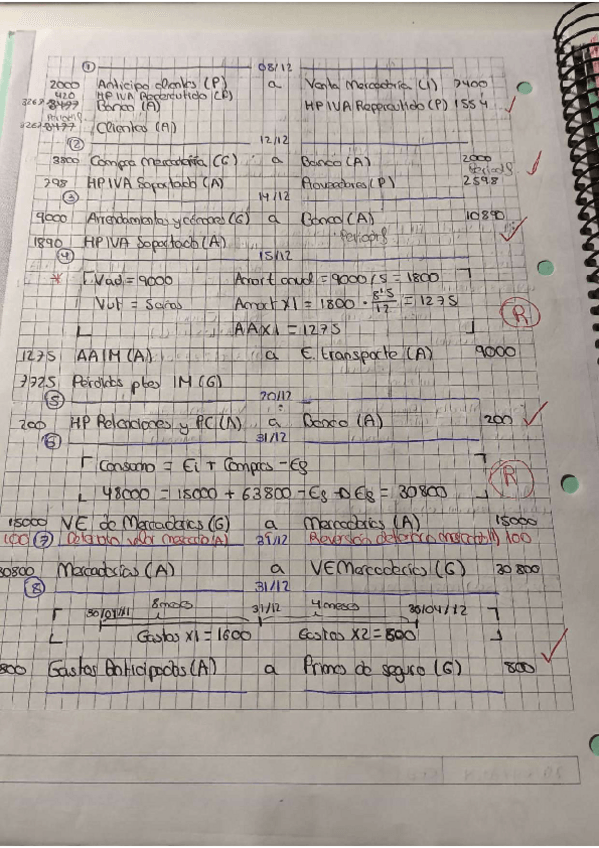 ① 08/12
2000 Anticipo clientes (P) a Venta Mercadería (I) 7400
420 HP IVA Repercutido (P) HP IVA Repercutido (P) 1554
3267 Banco (A)
3267 Clientes (A)
② 12/12
3800 Compra Mercadería (G) a Banco (A) 2000
798 HP IVA Soportado (A) Proveedores (P) 2598
③ 14/12
9000 Arrendamientos y cánones (G) a Banco (A) 10890
1890 HP IVA Soportado (A)
④ 15/12
* Vad = 9000 Amort anual = 9000/5 = 1800
Vut = 5 años Amort X1 = 1800 · 8'5/12 = 1275
AAX1 = 1275
R
1275 AAIM (A) a E. transporte (A) 9000
7725 Pérdidas ptes IM (G)
⑤ 20/12
200 HP Retenciones y PC (A) a Banco (A) 200
⑥ 31/12
Consumo = Ei + Compras - Ef
48000 = 15000 + 63800 - Ef → Ef = 30800
R
15000 VE de Mercaderías (G) a Mercaderías (A) 15000
100 ⑦ Deterioro valor mercad (A) 31/12 Reversión deterioro mercad (I) 100
30800 Mercaderías (A) a VE Mercaderías (G) 30800
⑧ 31/12
30/04/X1 8 meses 31/12 4 meses 30/04/12
Gastos X1 = 1600 Gastos X2 = 800
800 Gastos Anticipados (A) a Primas de seguro (G) 800